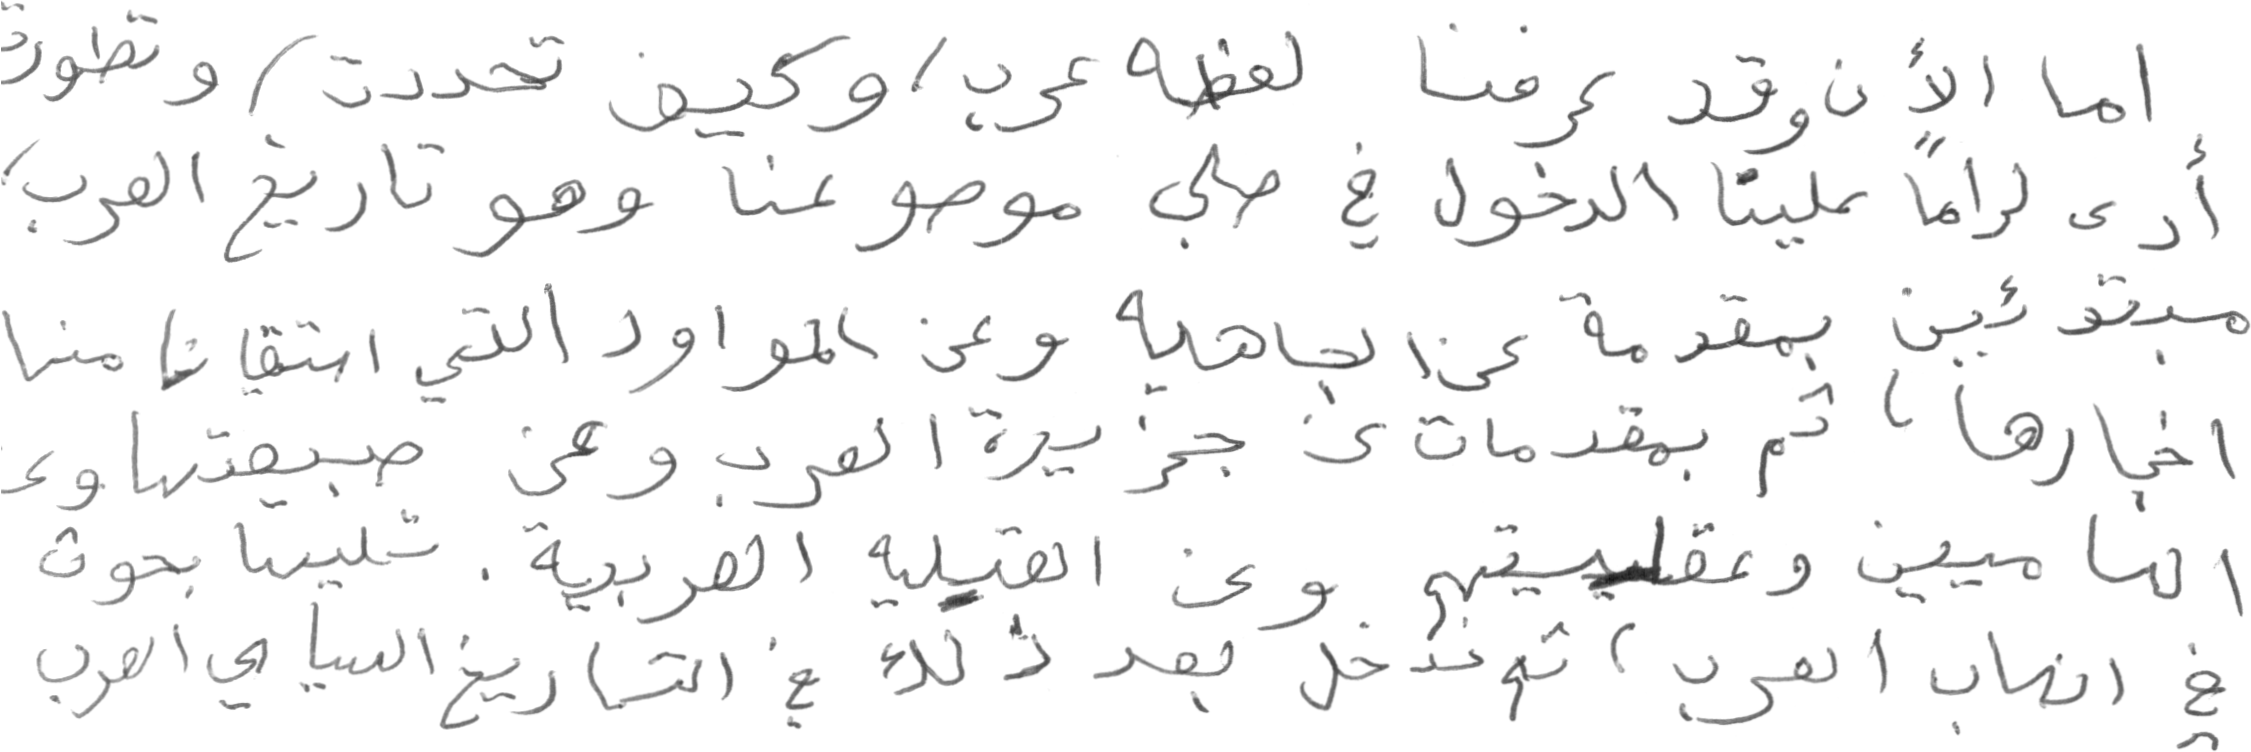 اما الأن وقد عرفنا لفظه عرب، وكيف تحددت، وتطورت
أرى لزاماً علينا الدخول في صلب موضوعنا وهو تاريخ العرب،
مبتدئين بمقدمة عن الجاهلية وعن المواود التي استقينا منها
اخبارها، ثم بمقدمات عن جزيرة العرب وعن طبيعتها وعن
الساميين وعقليتهم وعن العقلية العربية. تليها بحوث
في انساب العرب، ثم ندخل بعد ذلك في التاريخ السياسي العرب